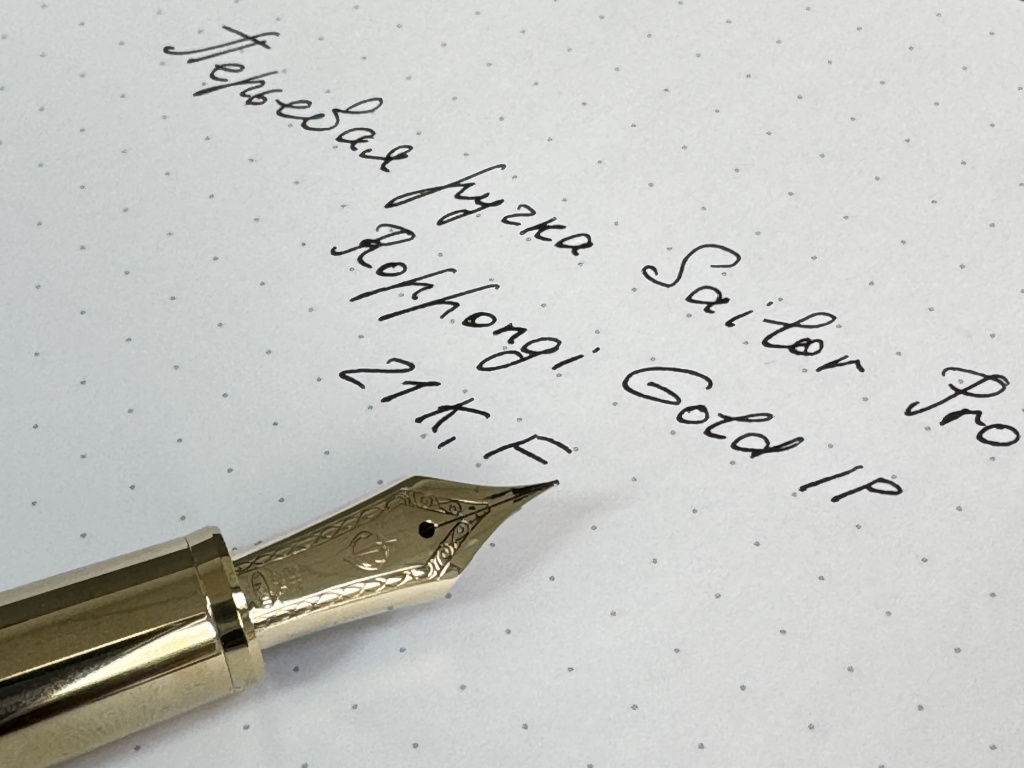 Перьевая ручка Sailor Pro
Roppongi Gold IP
21K, F